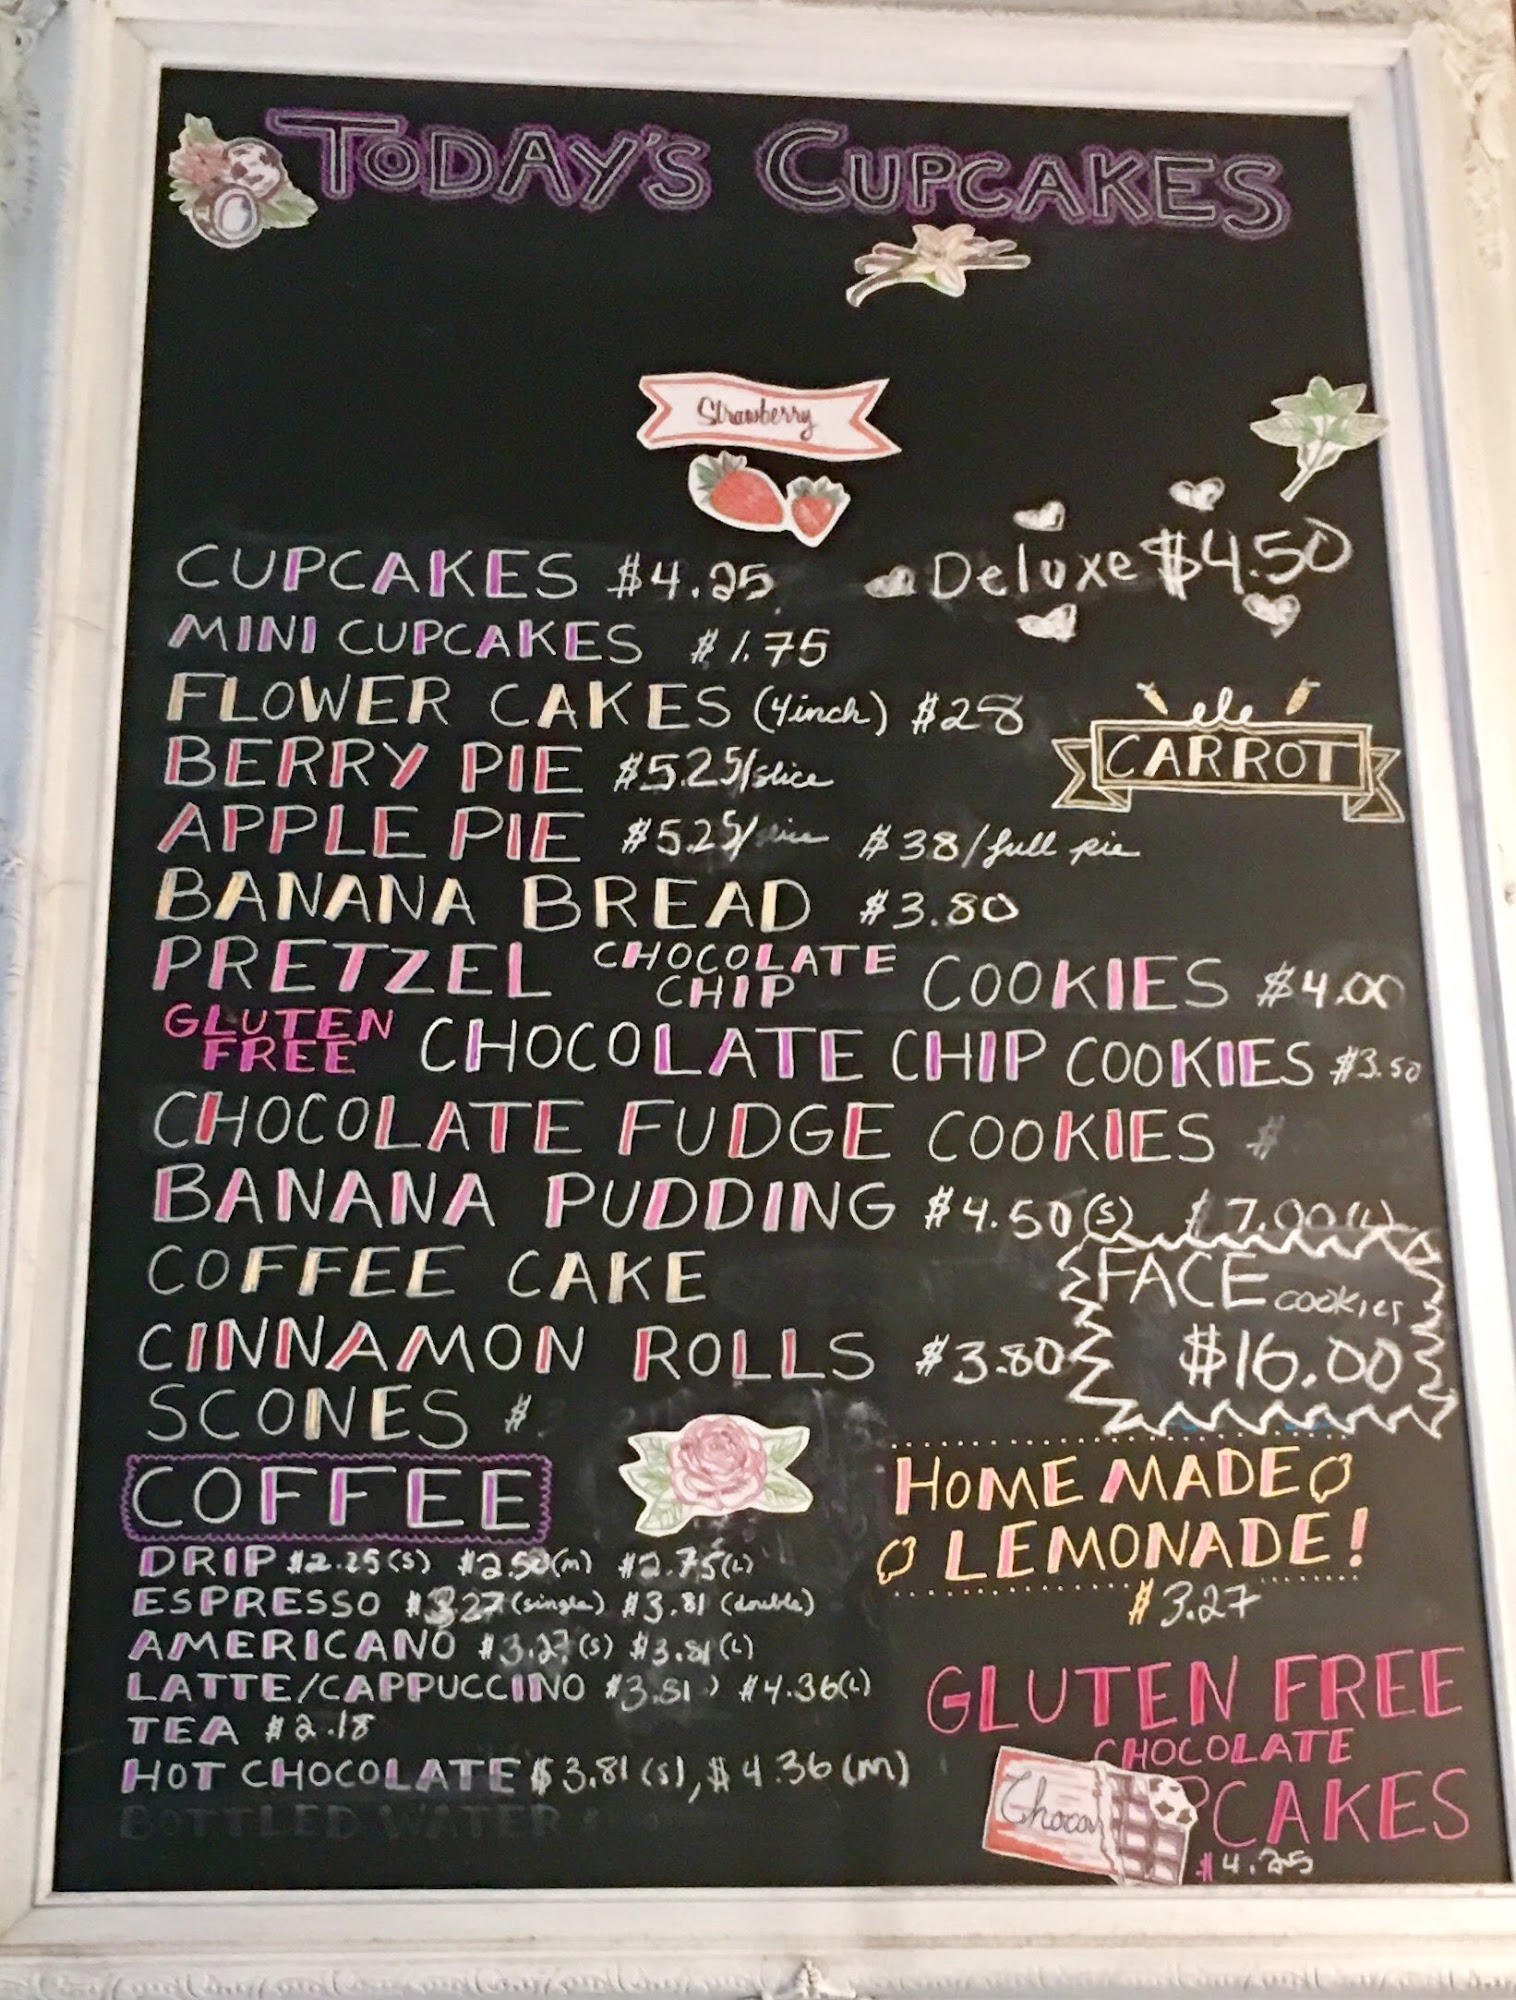 TODAY'S CUPCAKES
Strawberry
CUPCAKES $4.25
Deluxe $4.50
MINI CUPCAKES $1.75
FLOWER CAKES (4inch) $28
ele
CARROT
BERRY PIE $5.25/slice
APPLE PIE $5.25/slice $38/full pie
BANANA BREAD $3.80
PRETZEL CHOCOLATE CHIP COOKIES $4.00
GLUTEN FREE CHOCOLATE CHIP COOKIES $3.50
CHOCOLATE FUDGE COOKIES $
BANANA PUDDING $4.50(S) $7.00(L)
COFFEE CAKE
FACE cookies
$16.00
CINNAMON ROLLS $3.80
SCONES $
COFFEE
DRIP $2.25(S) $2.50(m) $2.75(L)
ESPRESSO $3.27(single) $3.81(double)
AMERICANO $3.27(S) $3.81(L)
LATTE/CAPPUCCINO $3.81) $4.36(L)
TEA $2.18
HOT CHOCOLATE $3.81(S), $4.36(m)
BOTTLED WATER
HOME MADE
LEMONADE!
$3.27
GLUTEN FREE
CHOCOLATE
PCAKES
Choco
$4.25